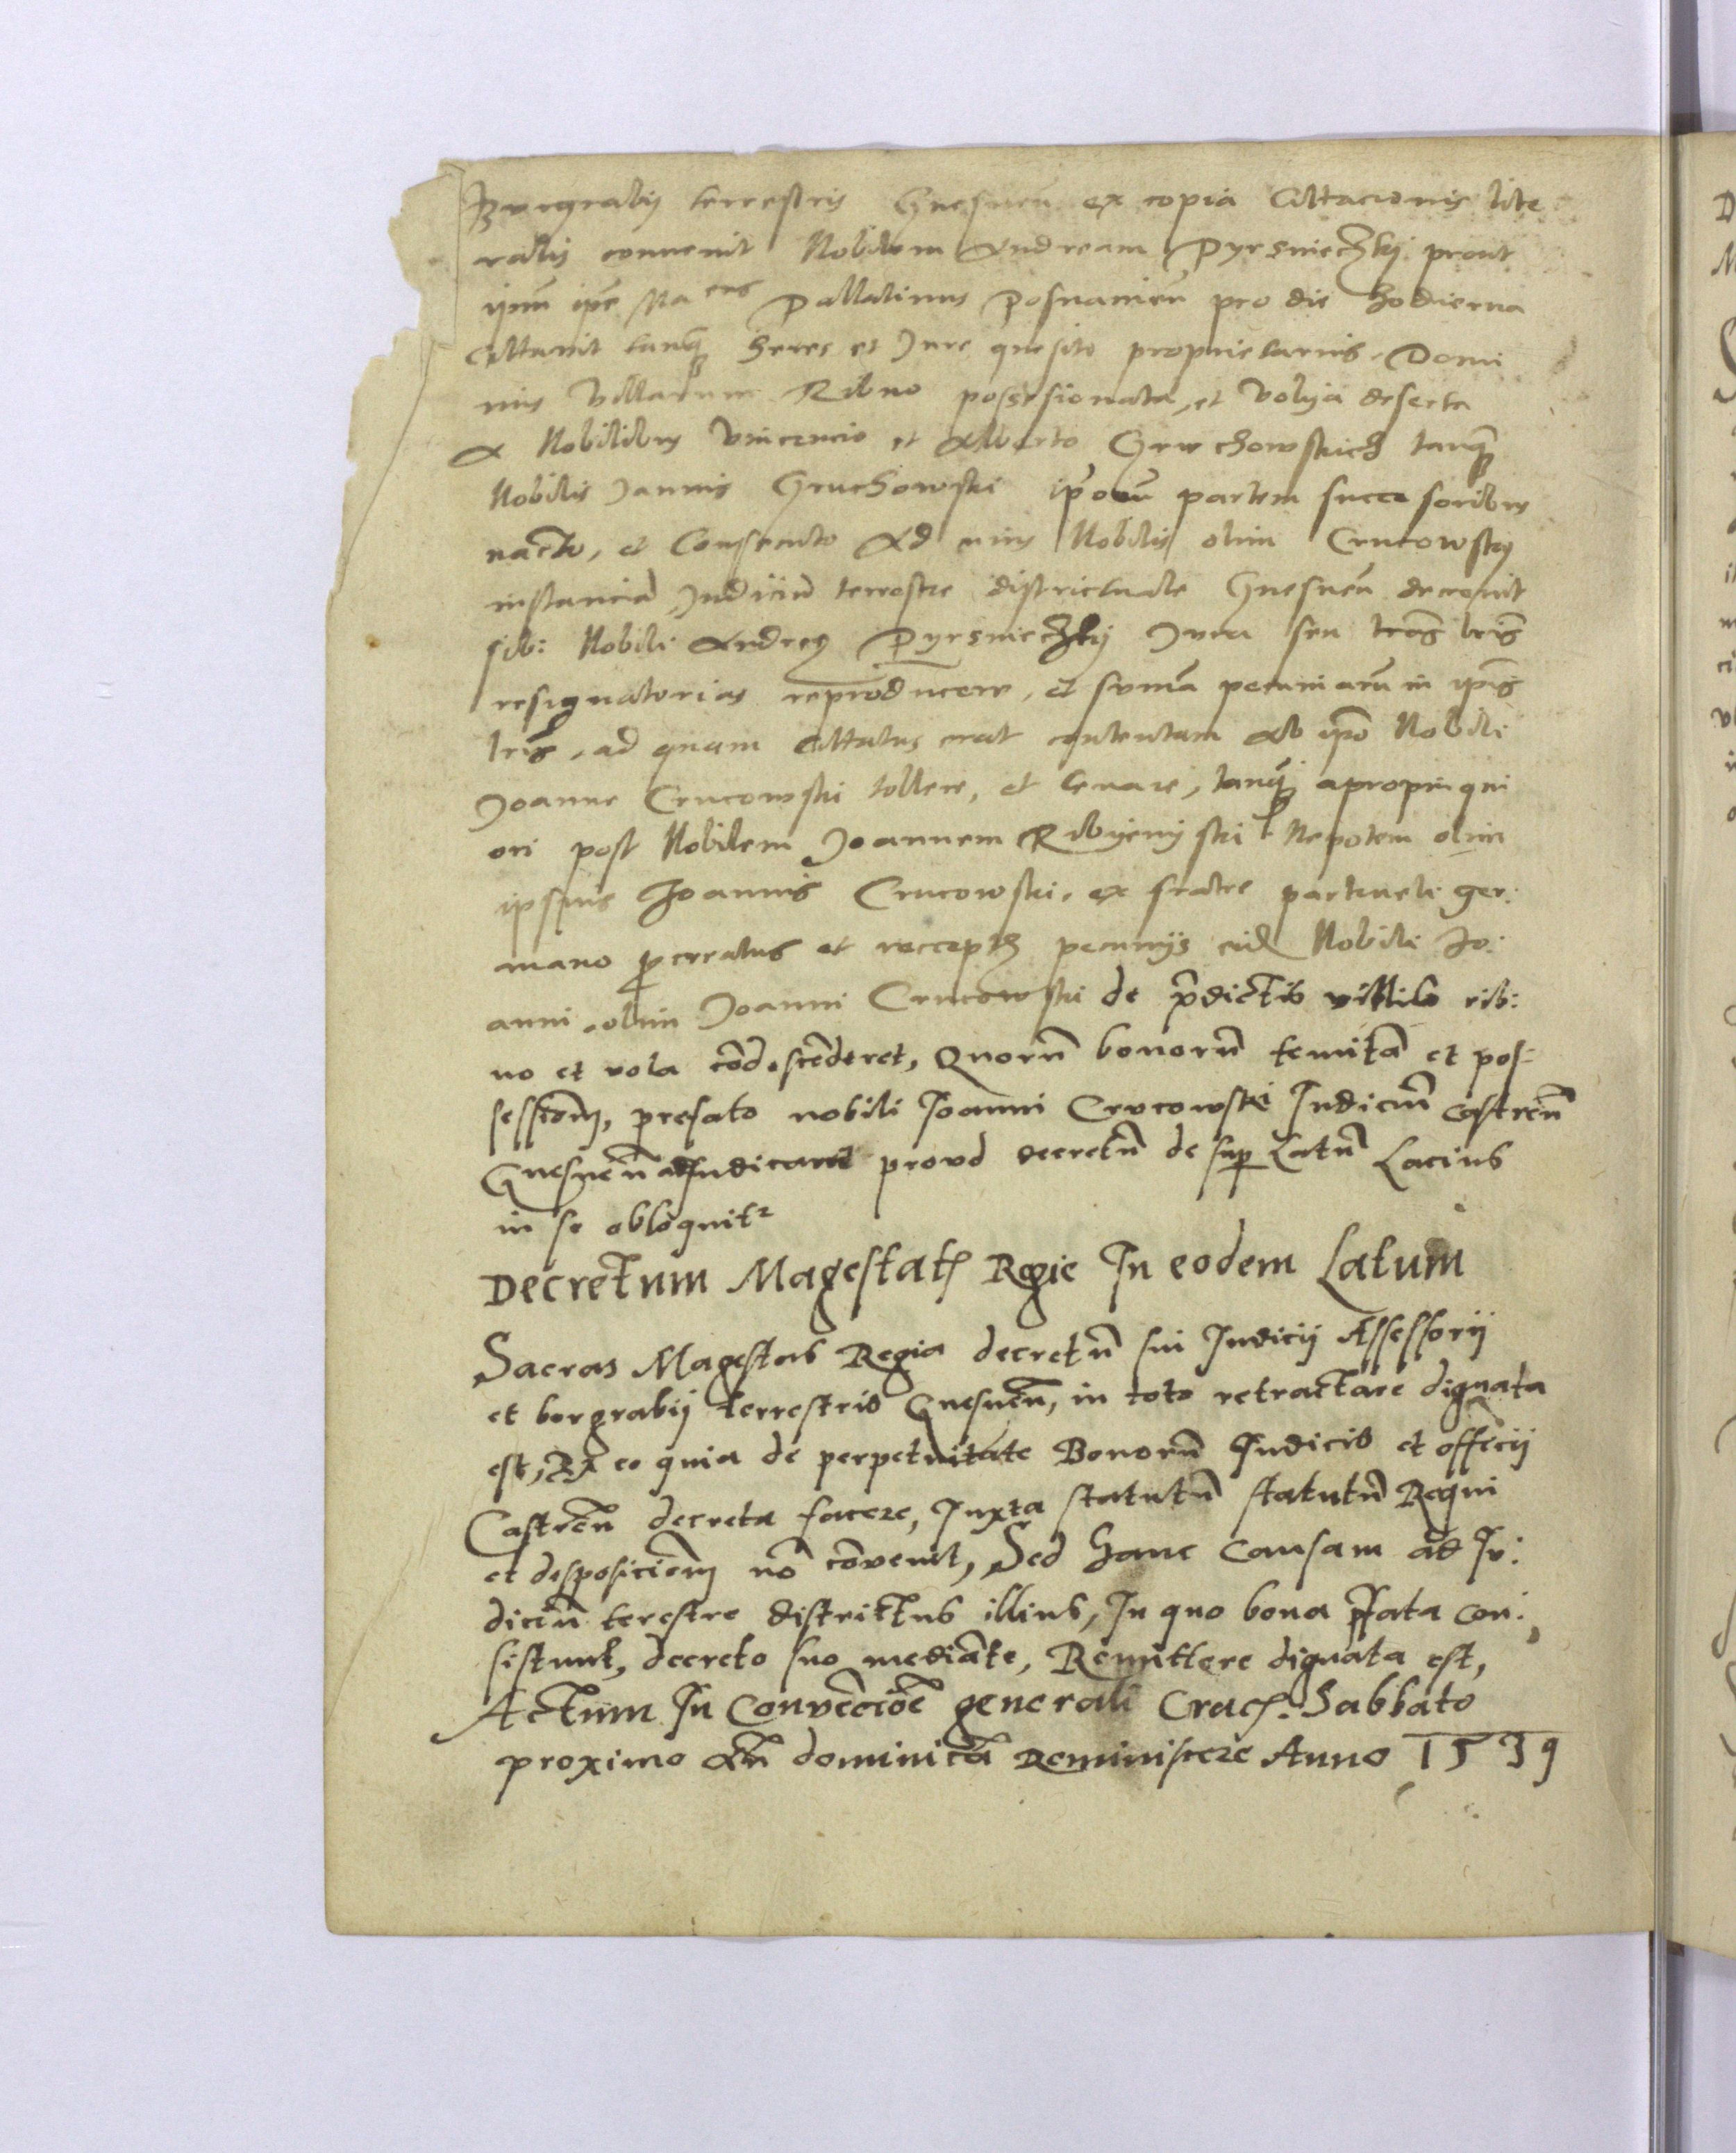 Burgrabij terrestris Gnesnen̄ ex copia Cittacionis lite
ralis convenit Nobilem Andream Pyrsnieczkij prout
ip̄m ip̄e Ma cus Pallatinus Posnanien̄ pro die hodierna
Cittavit tanq̄ heres et Jure quesito proprietarius Domi
nus villarum Ribno possesionata, et volija deserta
A Nobilibus Vincencio et Alberto Gruchowskich tanq̄
Nobilis Jannis Gruchowski ip̄orū partem successoribus
nacto, et Consecuto Ad eius Nobilis olim Crucowskij
instanciā Judiciū terrestre districtuale Gnesnen̄ decrevit
sibi Nobili Andreę Pyrsnieczkij Jura seu tr̄as
resignatorias reproducere, et sum̄a pecuniarū in ip̄is
tris, ad quam Cittatus erat contentam Ab ip̄o Nobili
Joanne Crucowski tollere, et levare, tanq̄ a propinqui
ori post Nobilem Joannem Ribijenijski Nepotem olim
ipsius Joannis Crucowski, ex fratre patrueli ger:
mano et pecunijs eid Nobili Jo:
anni olim Joanni Crucowski de p̄dictis villis rib:
no et vola cōdescēderet, Quorū bonorū tenutā et pos=
sessiōm, prefato nobili Joanni Crucowski Judiciū castren̄
Gnesnen̄ adjudicavit proud decretū de sup Latū Lacius
in se obloquitr
Decretum Magestatis Regie In eodem Latum
Sacras Magestas Regia decretū sui Judicij Assessorij
et borgrabij terrestris Gnesnen̄, in toto retractare dignata
est, Ex eo quia de perpetuitate Bonorū Judicio et officij
Castren̄ decreta facere, Juxta statutū statutū Regni
et disposiciōm nō cōvenit, Sed hanc causam ad Ju:
diciū terestre districtus illius, In quo bona p̄fata con:
sistunt, decreto suo mediāte, Remittere dignata est,
Actum In Convēcciōe generali Crac. Sabbato
proximo an̄ dominicā Reminiscere Anno 1539